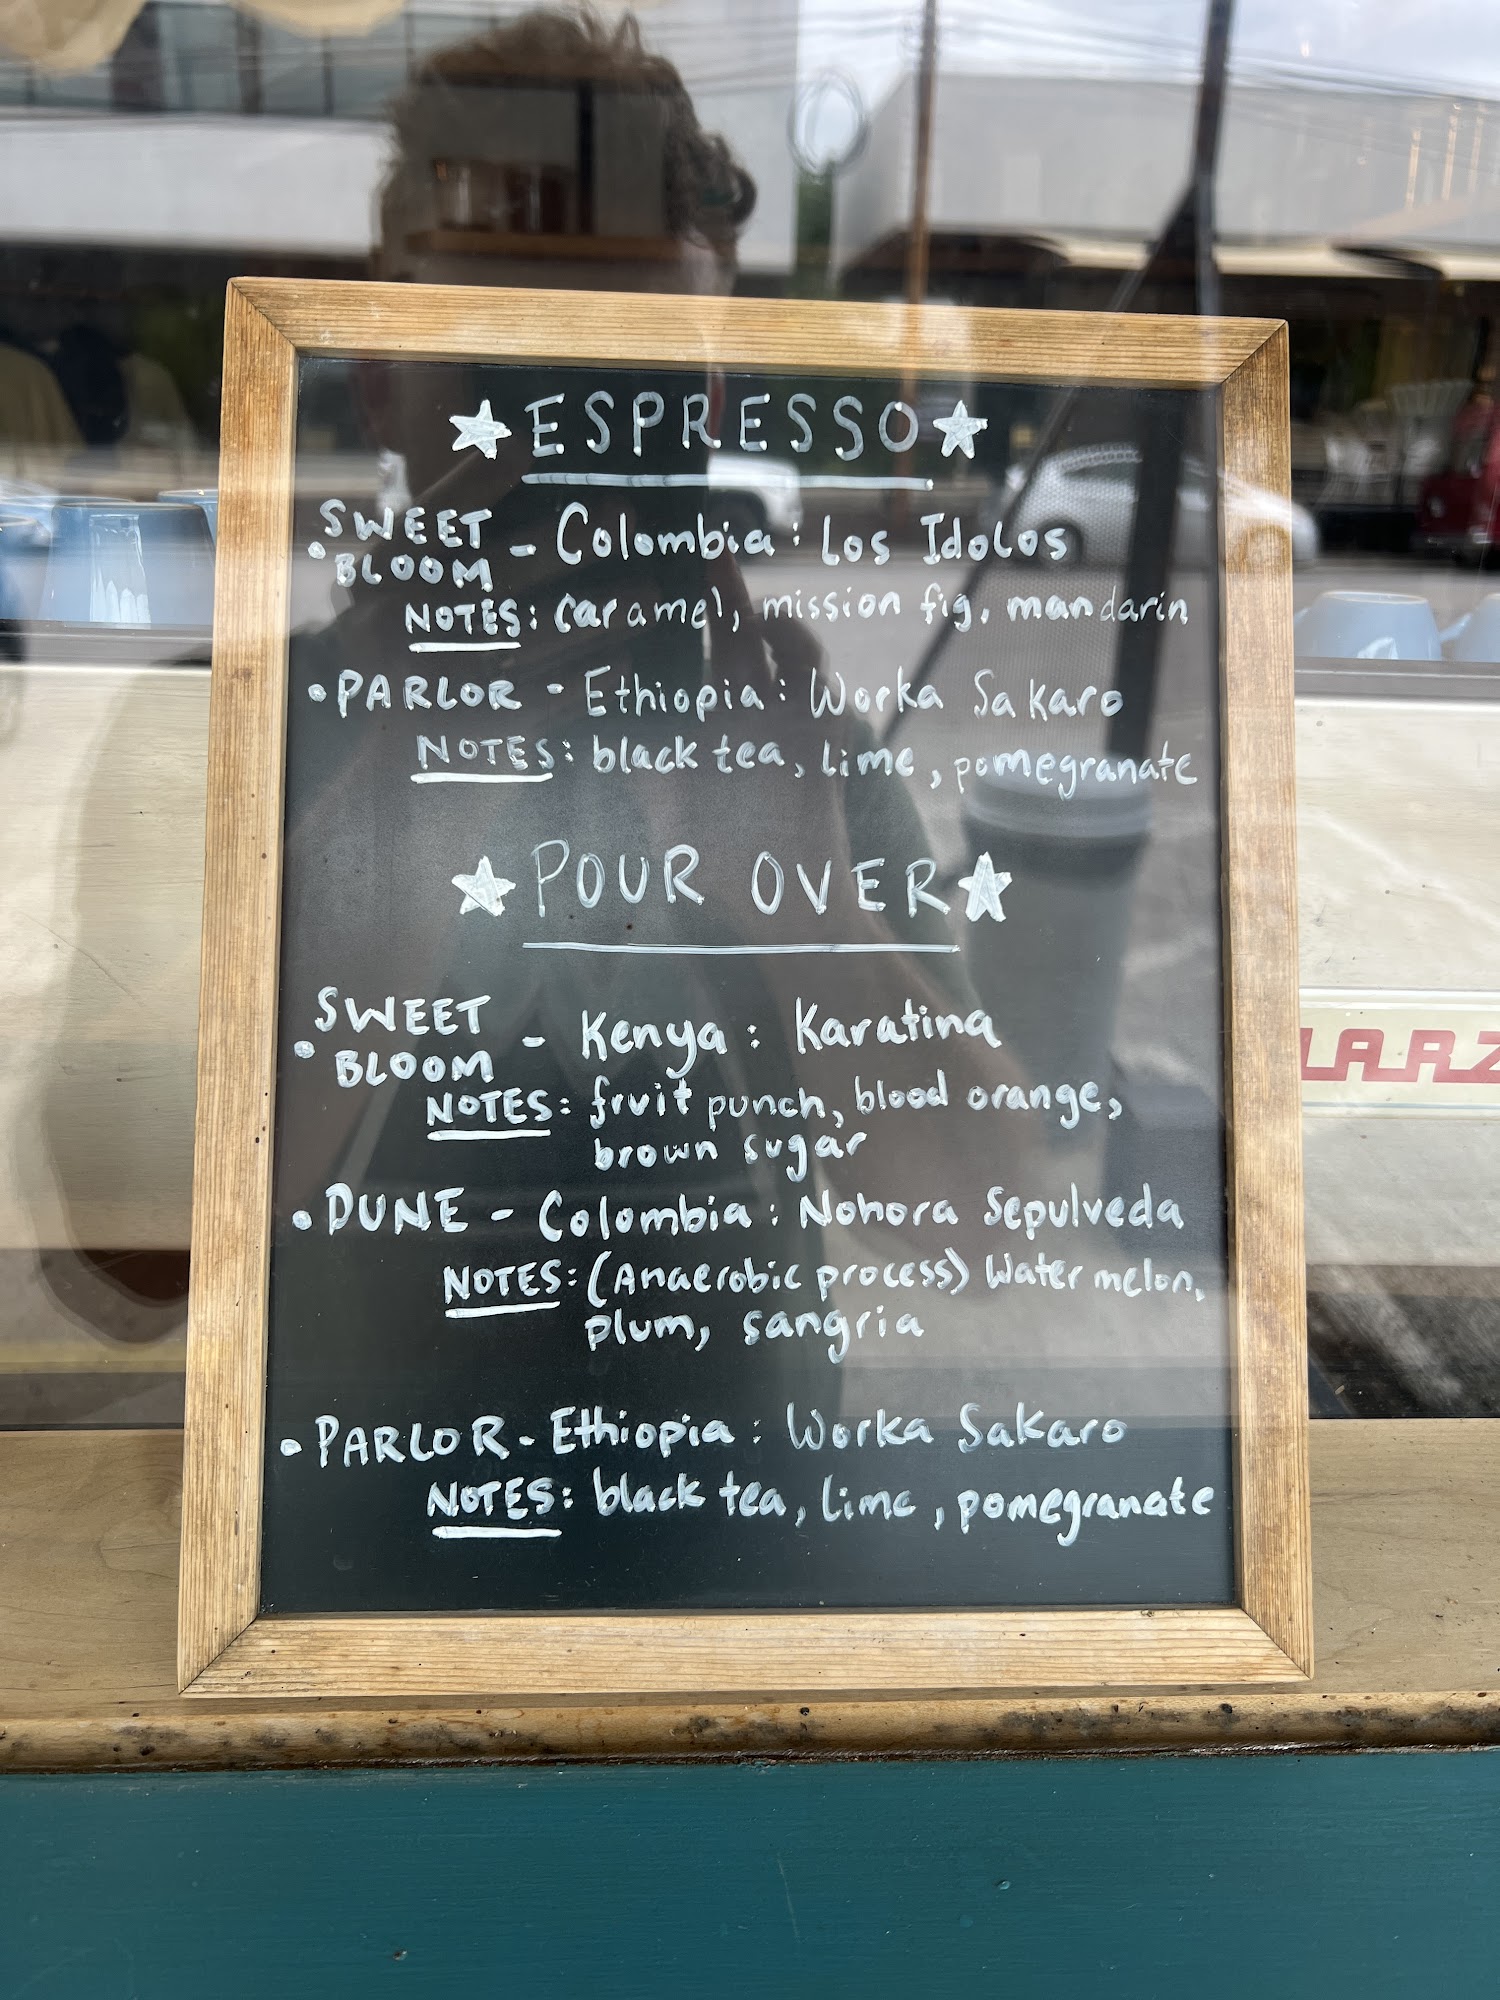 ★ESPRESSO★
• SWEET BLOOM - Colombia: Los Idolos
NOTES: caramel, mission fig, mandarin
• PARLOR - Ethiopia: Worka Sakaro
NOTES: black tea, lime, pomegranate
★POUR OVER★
• SWEET BLOOM - Kenya: Karatina
NOTES: fruit punch, blood orange,
brown sugar
• DUNE - Colombia: Nohora Sepulveda
NOTES: (Anaerobic process) Watermelon,
plum, sangria
• PARLOR - Ethiopia: Worka Sakaro
NOTES: black tea, lime, pomegranate